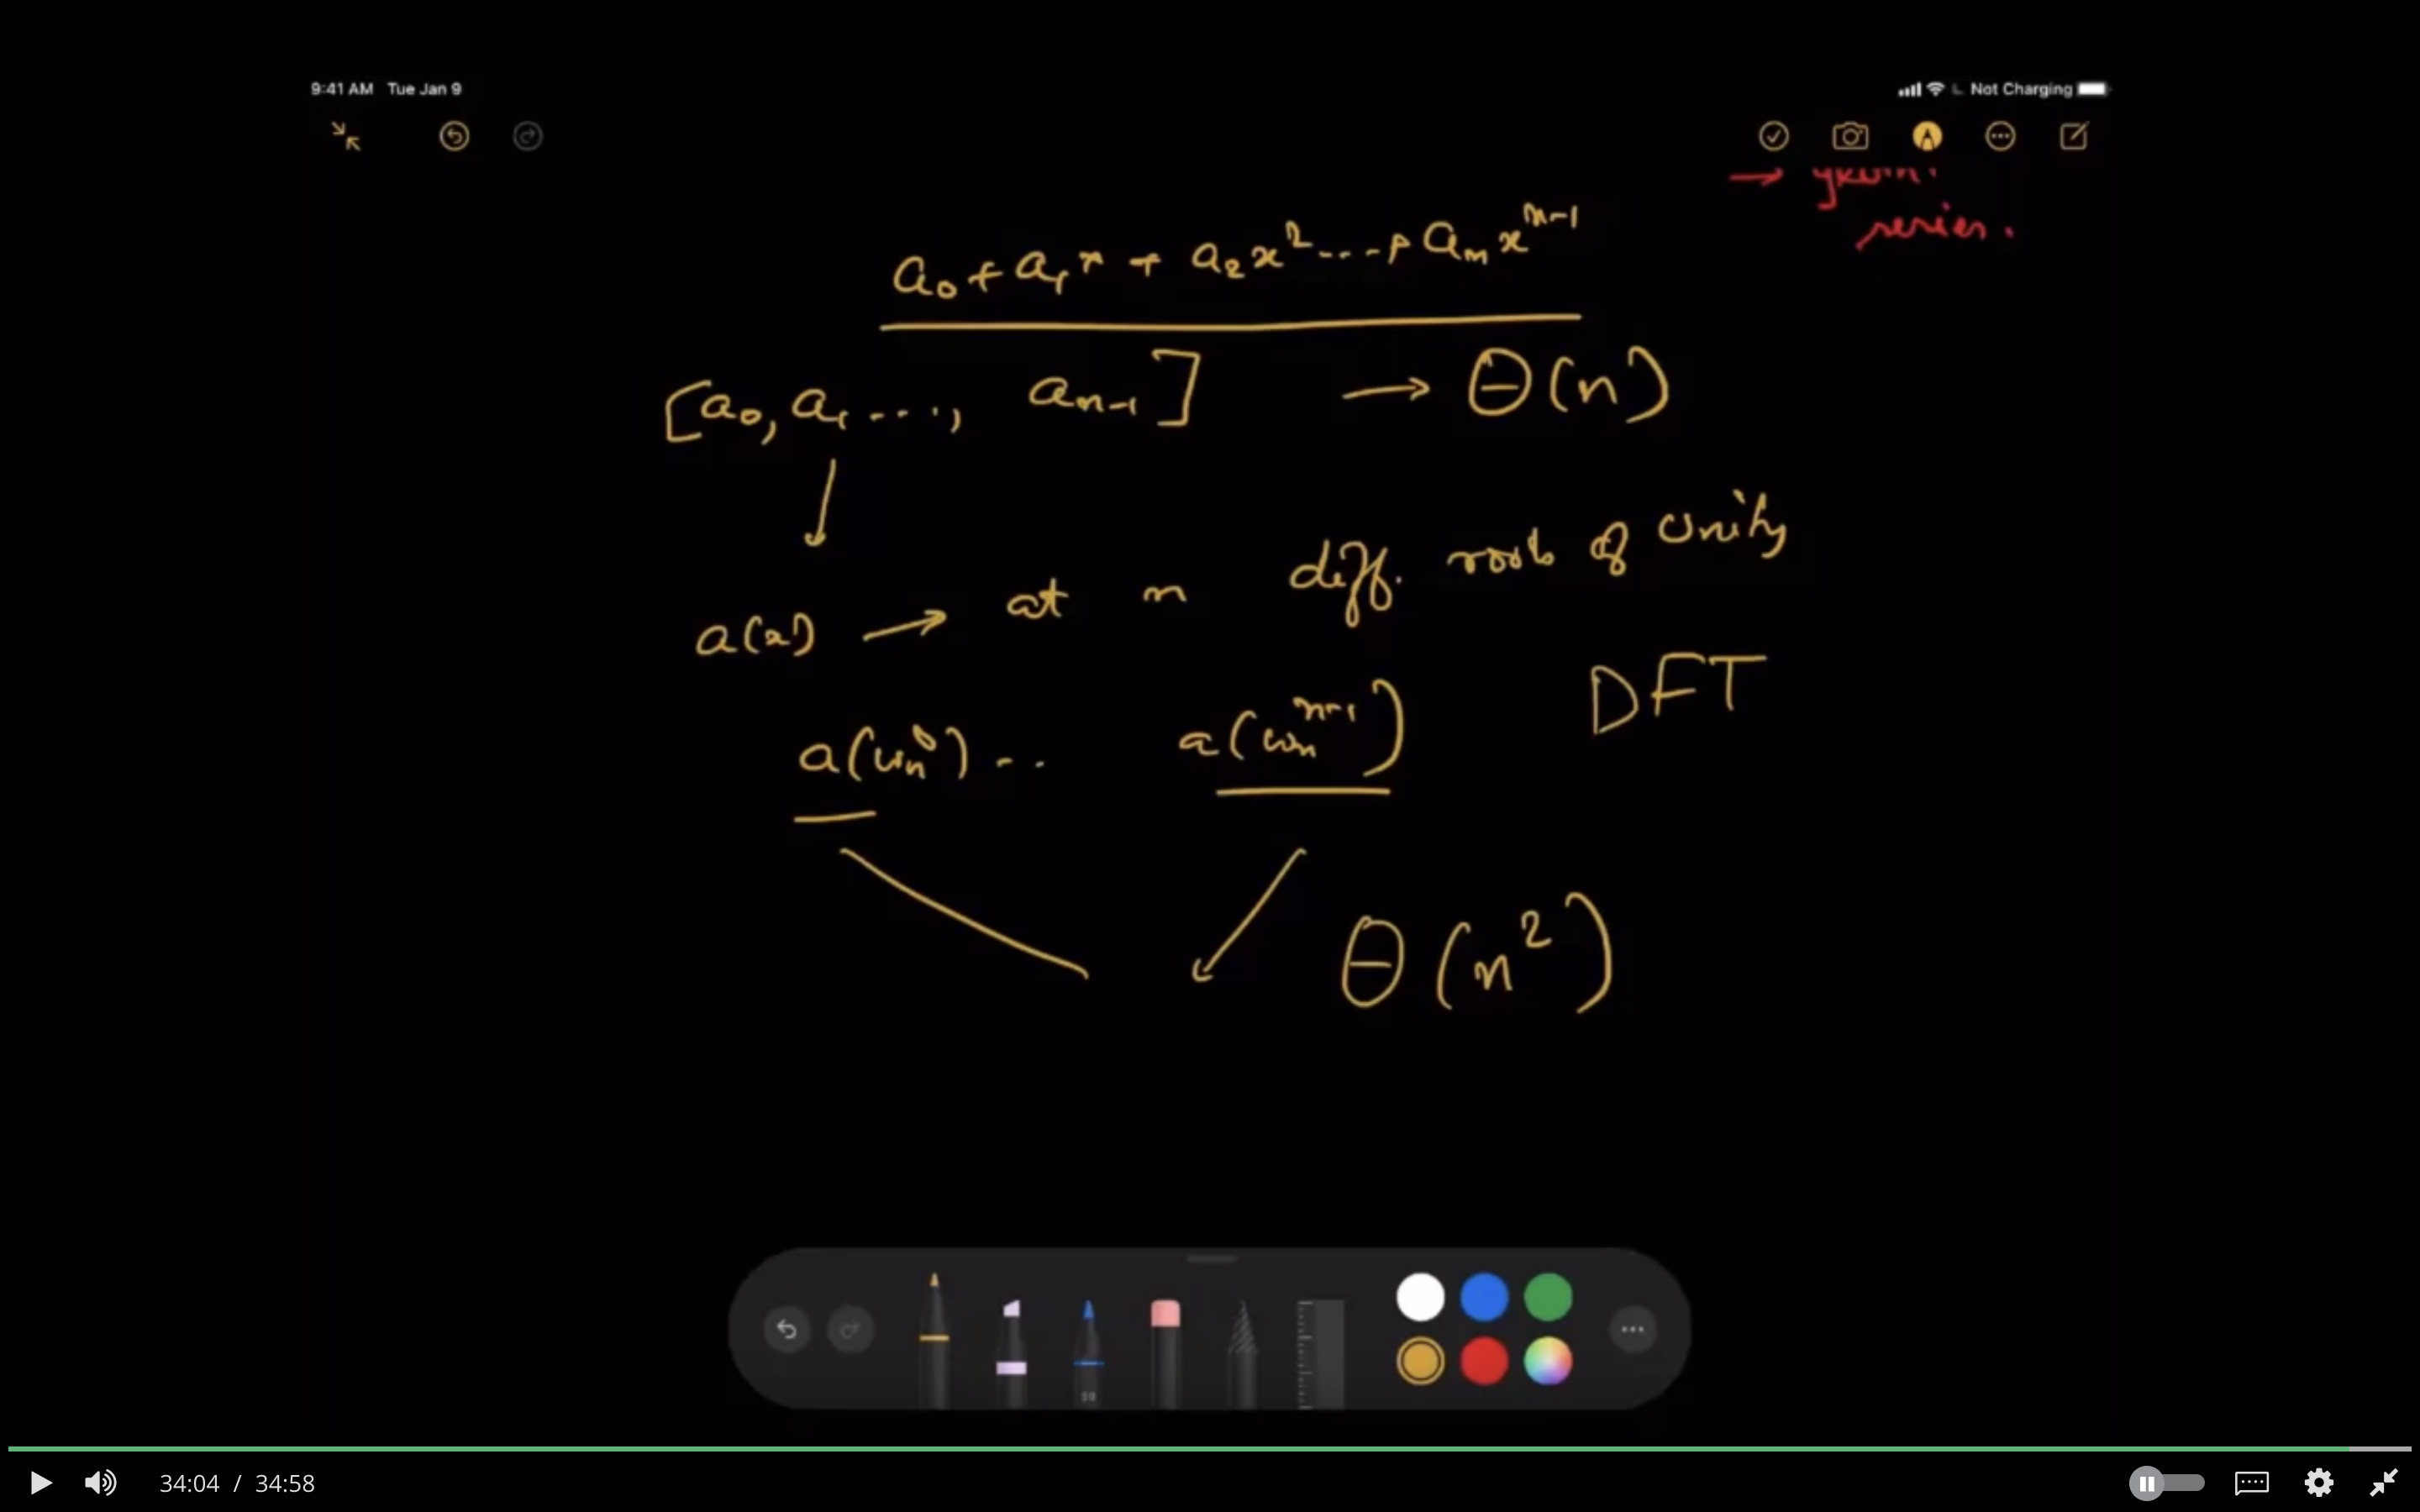 9:41 AM Tue Jan 9
Not Charging
→
series.
a₀ + a₁x + a₂x² ... + aₙxⁿ⁻¹
[a₀, a₁ ..., aₙ₋₁] → Θ(n)
↓
a(x) → at n diff. roots of Unity
DFT
a(ωₙ⁰) .. a(ωₙⁿ⁻¹)
Θ(n²)
34:04 / 34:58